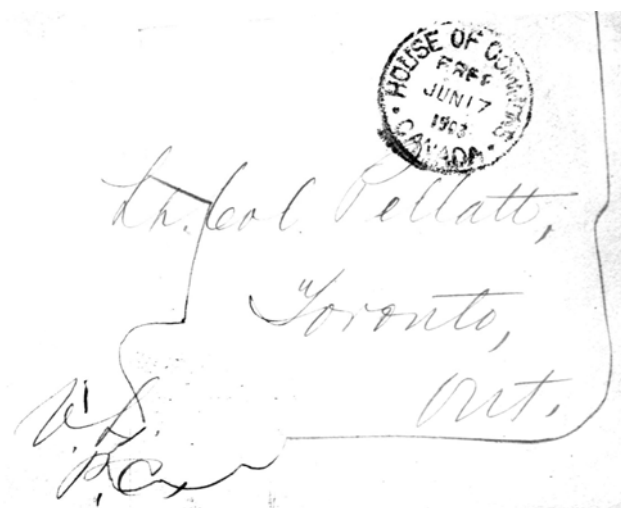 HOUSE OF COMMONS
FREE
JUN 17
CANADA
Lt. Col. Pellatt,
Toronto,
Ont.